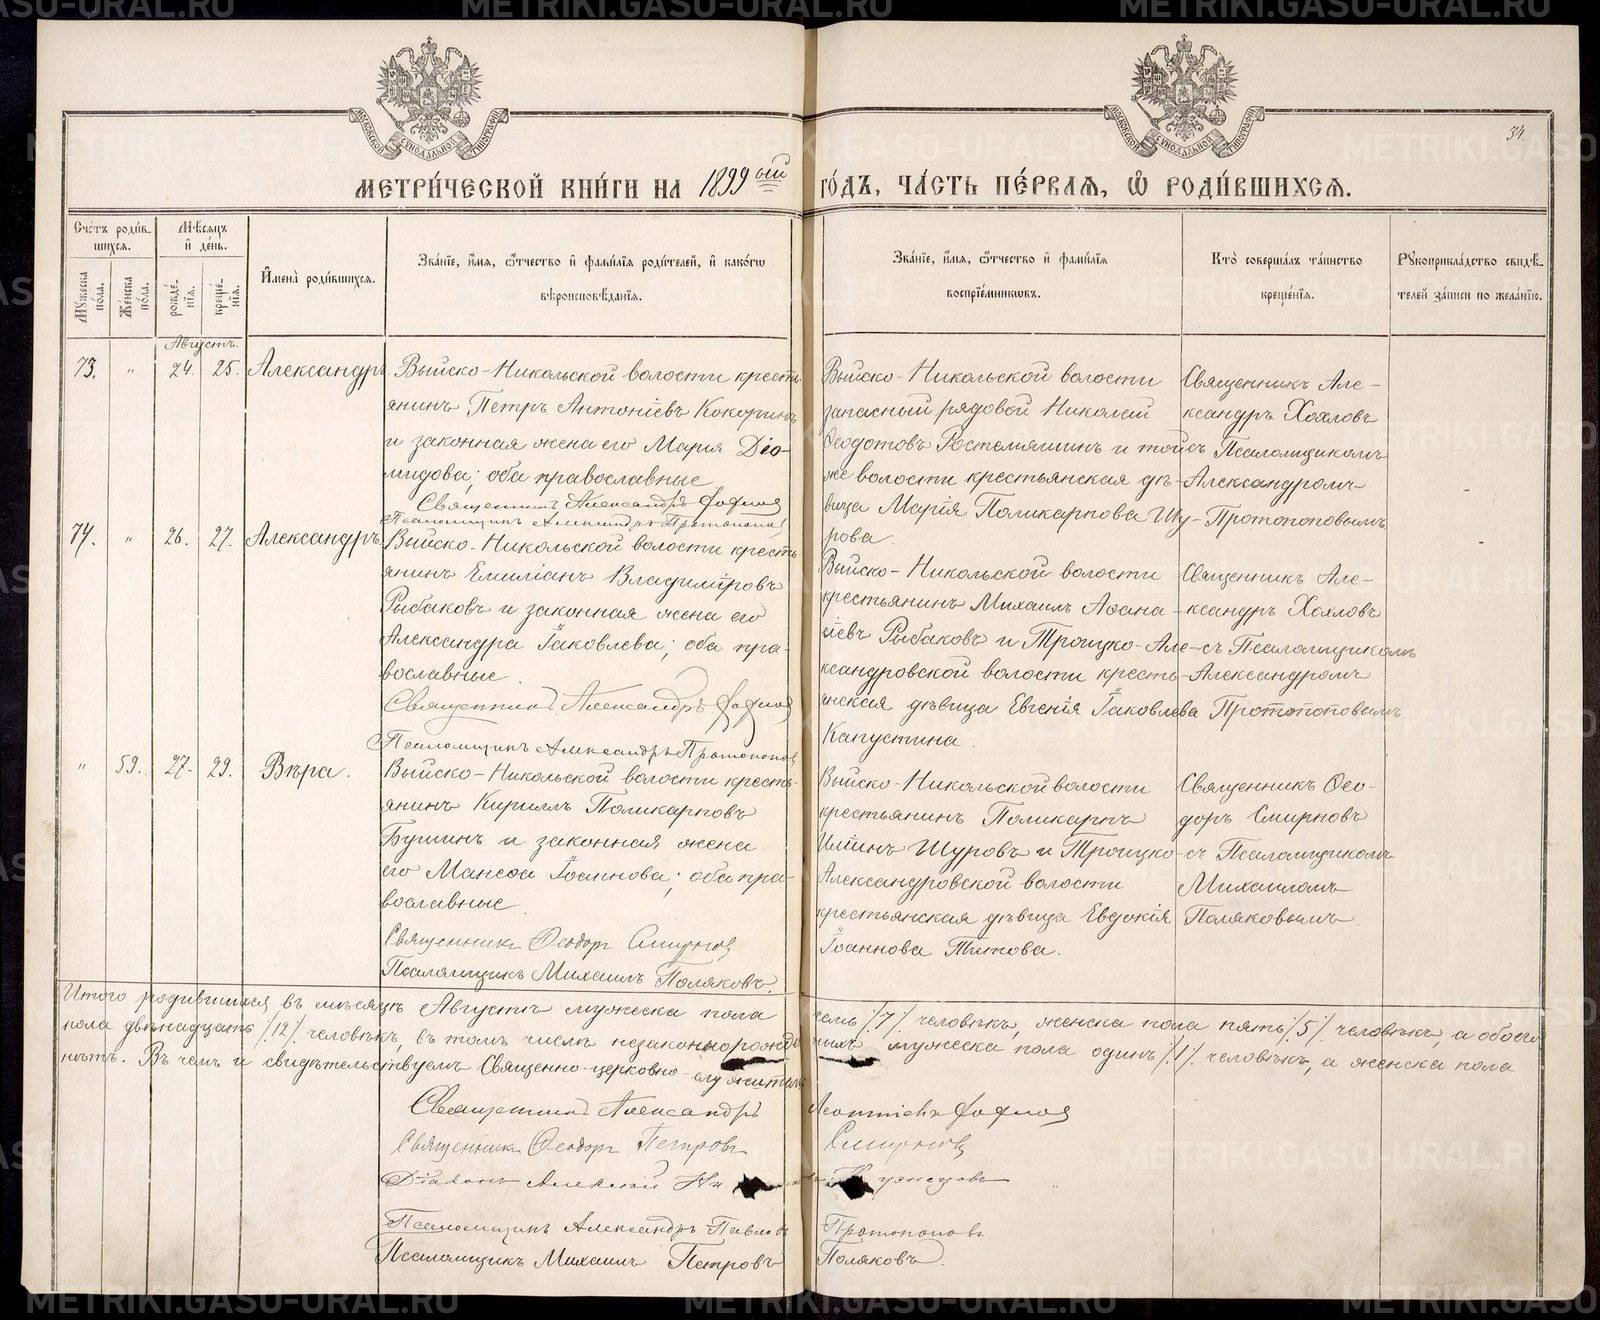 34.
МОСКОВСКОЙ СѴНОДАЛЬНОЙ ТИПОГРАФІИ
МОСКОВСКОЙ СѴНОДАЛЬНОЙ ТИПОГРАФІИ
МЕТРИ́ЧЕСКОЙ КНИ́ГИ НА 1899 ый
ГО́ДЪ, ЧА́СТЬ ПЕ́РВАѦ, Ѡ҆ РОДИ́ВШИХСѦ.
Сче́тъ роди́в-
шихсѧ.
Мꙋжеска по́ла.
Же́нска по́ла.
Мѣ́сѧцъ
и҆ де́нь.
рожде́нїѧ.
креще́нїѧ.
И҆мена̀ роди́вшихсѧ.
Зва́нїе, и҆́мѧ, ѻ҆́тчество и҆ фамі́лїѧ роди́телей, и҆ како́гѡ
вѣроисповѣ́данїѧ.
Зва́нїе, и҆́мѧ, ѻ҆́тчество и҆ фамі́лїѧ
воспрїе́мникѡвъ.
Кто̀ соверша́лъ та́инство
креще́нїѧ.
Рꙋкоприкла́дство свидѣ́-
телей за́писи по жела́нїю.
Августъ.
73. „ 24. 25. Александръ
Выйско-Никольской волости кресть-
янинъ Петръ Антоніевъ Кокоринъ
и законная жена его Марія Діо-
мидова; оба православные
Священникъ Александръ Хохлов
Псаломщикъ Александръ Протопопов
Выйско-Никольской волости
запасный рядовой Николай
Ѳеодотовъ Ростемяшинъ и той
же волости крестьянская дѣ-
вица Марія Поликарпова Щу-
рова.
Священникъ Але-
ксандръ Хохловъ
съ Псаломщикомъ
Александромъ
Протопоповымъ
74. „ 26. 27. Александръ.
Выйско-Никольской волости кресть-
янинъ Емиліанъ Владиміровъ
Рыбаковъ и законная жена его
Александра Іаковлева; оба пра-
вославные.
Священникъ Александръ Хохлов
Псаломщикъ Александръ Протопопов
Выйско-Никольской волости
крестьянинъ Михаилъ Аѳана-
сіевъ Рыбаковъ и Троицко-Але-
ксандровской волости кресть-
янская дѣвица Евгенія Іаковлева
Капустина.
Священникъ Але-
ксандръ Хохловъ
съ Псаломщикомъ
Александромъ
Протопоповымъ
„ 59. 27. 29. Вѣра.
Выйско-Никольской волости кресть-
янинъ Кириллъ Поликарповъ
Бушинъ и законная жена
его Мансоа Іоаннова; оба пра-
вославные
Священникъ Ѳеодоръ Смирнов
Псаломщикъ Михаилъ Поляковъ.
Выйско-Никольской волости
крестьянинъ Поликарпъ
Ильинъ Щуровъ и Троицко-
Александровской волости
крестьянская дѣвица Евдокія
Іоаннова Титова.
Священникъ Ѳео-
доръ Смирновъ
съ Псаломщикомъ
Михаиломъ
Поляковымъ
Итого родившихся въ мѣсяцѣ Августѣ мужеска пола семь /7/ человѣкъ, женска пола пять /5/ человѣкъ, а обоего
пола двѣнадцать /12/ человѣкъ, въ томъ числѣ незаконнорожденныхъ мужеска пола одинъ /1/ человѣкъ, а женска пола
нѣтъ. Въ чемъ и свидѣтельствуемъ Священно-церковно-служители
Священникъ Александръ Леонтіевъ Хохлов
Священникъ Ѳеодоръ Петровъ Смирнов
Діаконъ Алексѣй Кузнецовъ
Псаломщикъ Александръ Павловъ Протопоповъ
Псаломщикъ Михаилъ Петровъ Поляковъ.
METRIKI.GASU-URAL.RU